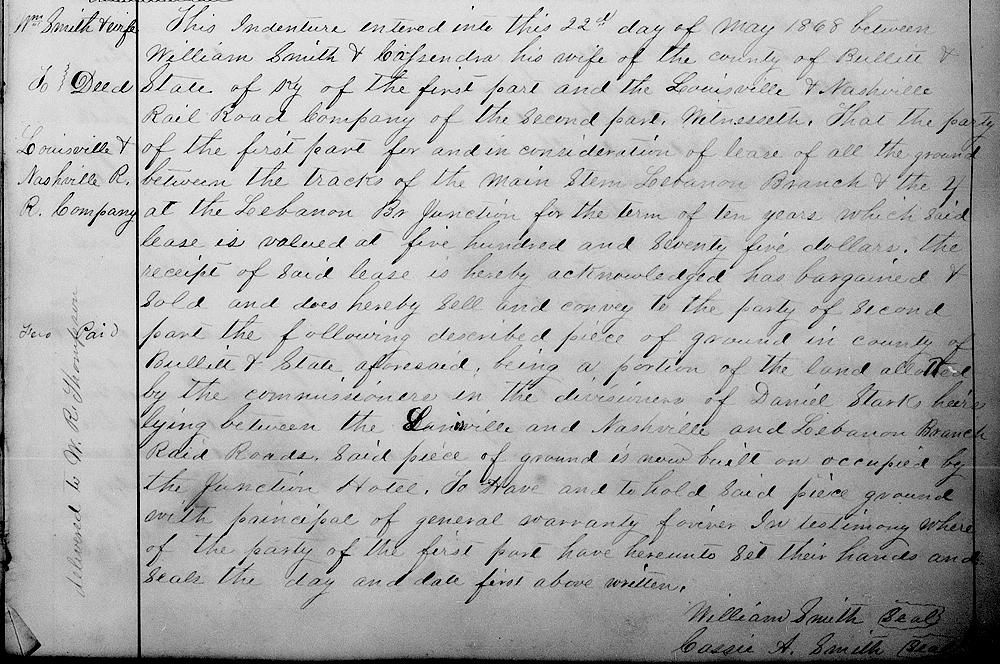 Wm Smith & wife
To } Deed
Louisville &
Nashville R.
R. Company
Paid
delivered to W. R. Thompson
This Indenture entered into this 22d day of May 1868 between
William Smith & Cassendra his wife of the county of Bullett &
State of Ky of the first part and the Louisville & Nashville
Rail Road Company of the Second part. Witnesseth. That the party
of the first part for and in consideration of lease of all the ground
between the tracks of the Main Stem Lebanon Branch & the Y
at the Lebanon Br Junction for the term of ten years which said
lease is valued at five hundred and seventy five dollars. the
receipt of said lease is hereby acknowledged has bargained &
sold and does hereby sell and convey to the party of second
part the following described piece of ground in county of
Bullett & State aforesaid, being a portion of the land allotted
by the commissioners in the divisioners of Daniel Starks heirs
lying between the Louisville and Nashville and Lebanon Branch
Raid Roads. Said piece of ground is now built on occupied by
the Junction Hotel. To Have and to hold said piece ground
with principal of general warranty forever In testimony where
of the party of the first part have hereunto set their hands and
seals the day and date first above written.
William Smith (Seal)
Cassie A. Smith (Seal)